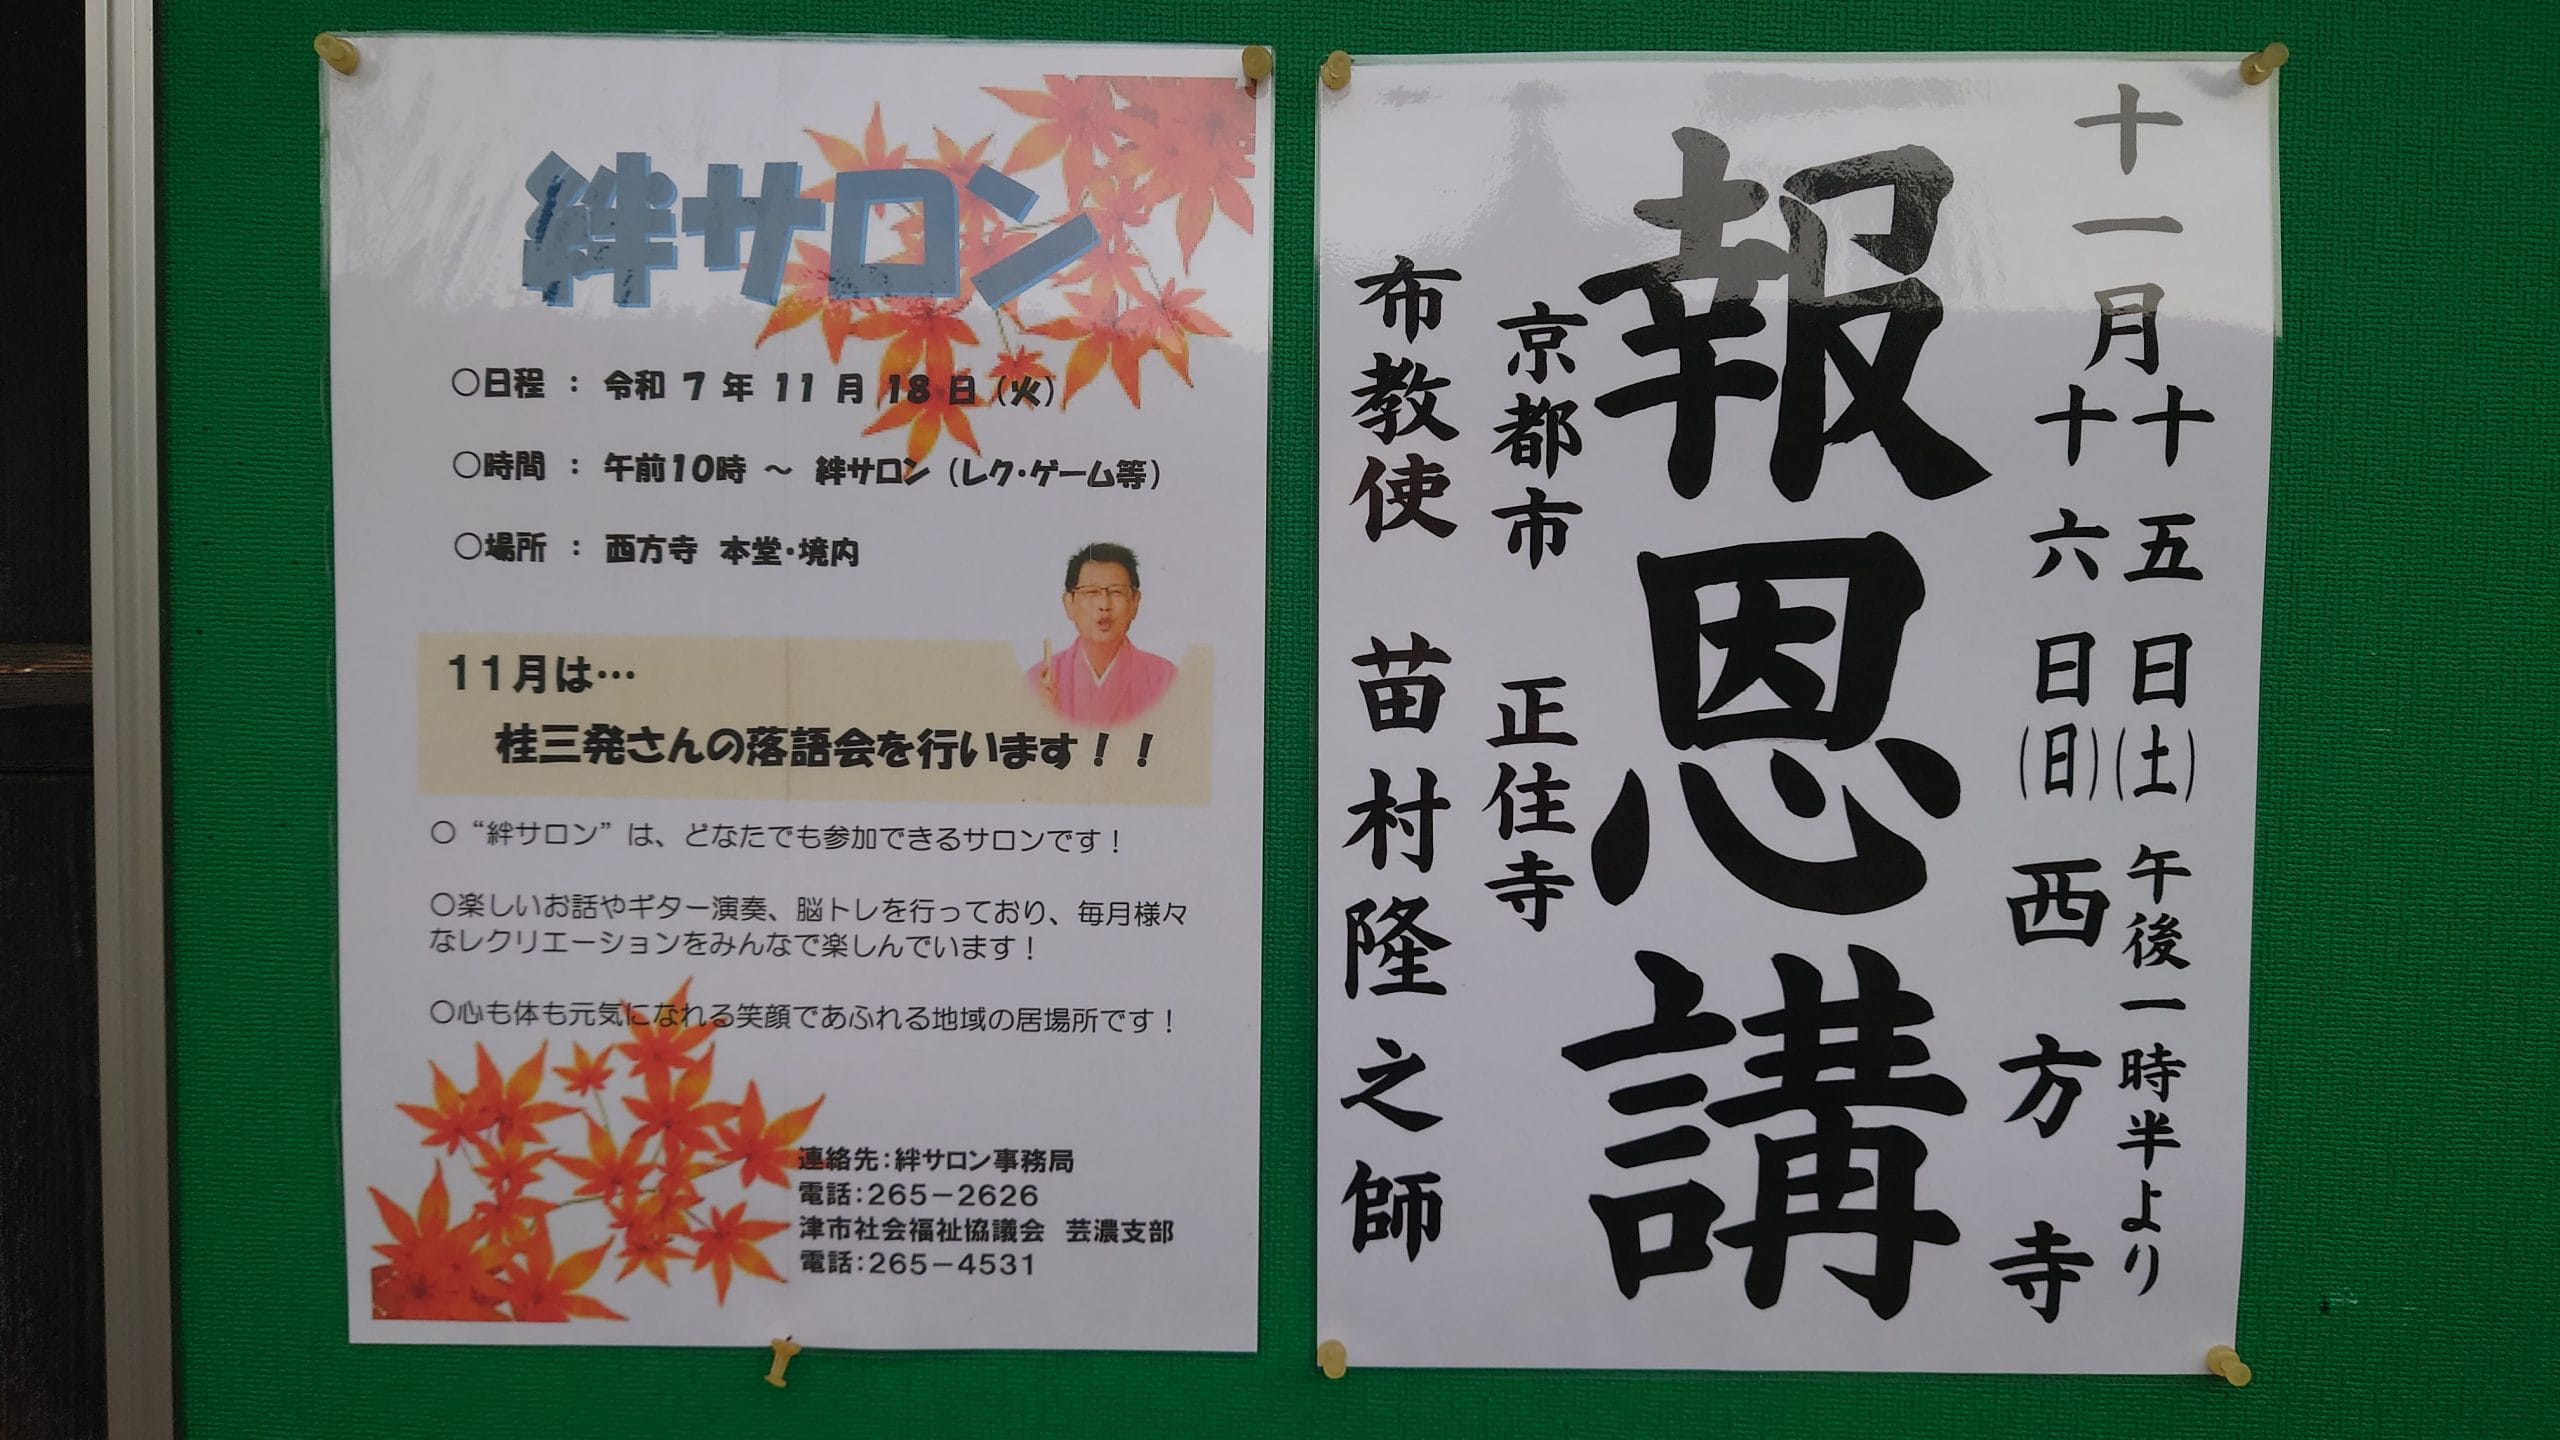 絆サロン
○日程 : 令和 7 年 11 月 18 日 (火)
○時間 : 午前10時 ～ 絆サロン (レク・ゲーム等)
○場所 : 西方寺 本堂・境内
11月は…
桂三発さんの落語会を行います！！
○“絆サロン”は、どなたでも参加できるサロンです！
○楽しいお話やギター演奏、脳トレを行っており、毎月様々
なレクリエーションをみんなで楽しんでいます！
○心も体も元気になれる笑顔であふれる地域の居場所です！
連絡先:絆サロン事務局
電話:265－2626
津市社会福祉協議会 芸濃支部
電話:265－4531
十一月
十五日(土)午後一時半より
十六日(日)
西方寺
報恩講
京都市 正住寺
布教使 苗村隆之師